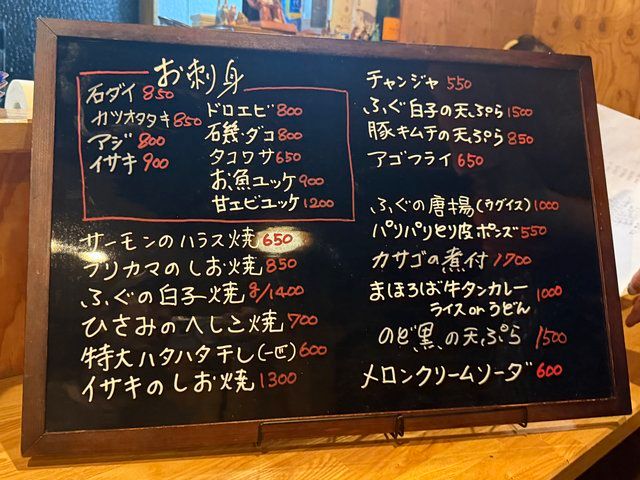 お刺身
石ダイ 850
カツオタタキ 850
アジ 800
イサキ 900
ドロエビ 800
石磯ダコ 800
タコワサ 650
お魚ユッケ 900
甘エビユッケ 1200
サーモンのハラス焼 650
ブリカマのしお焼 850
ふぐの白子焼 8/1400
ひさみのへしこ焼 700
特大ハタハタ干し(一匹) 600
イサキのしお焼 1300
チャンジャ 550
ふぐ白子の天ぷら 1500
豚キムチの天ぷら 850
アゴフライ 650
ふぐの唐揚(カグイス) 1000
パリパリとり皮ポンズ 550
カサゴの煮付 1700
まほろば牛タンカレー 1000
ライス or うどん
のど黒の天ぷら 1500
メロンクリームソーダ 600